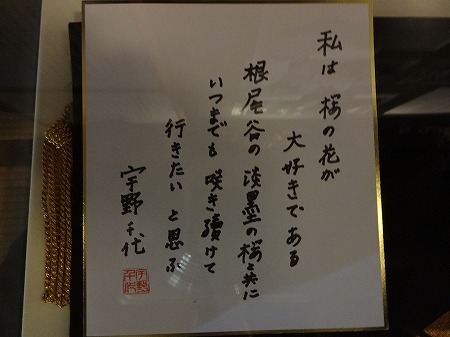 私は 桜の花が
大好きである
根尾谷の淡墨の桜と共に
いつまでも 咲き續けて
行きたい と思ふ
宇野千代